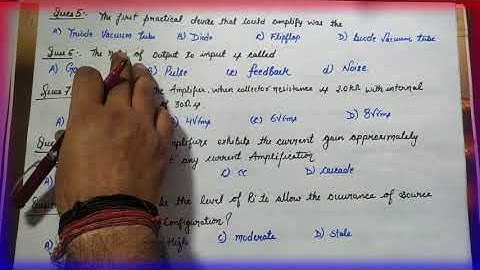 Ques 5:- The first practical device that could amplify was the
A) Triode Vacuum tube B) Diode C) Flipflop D) Diode Vacuum tube
Ques 6:- The of output to input is called
A) B) Pulse (c) feedback d) Noise
Ques 7 the Amplifier, when collector resistance is 20kΩ with internal
of 30Ω is
A) 4Vrms (c) 6Vrms D) 8Vrms
Ques amplifiers exhibits the current gain approximately
any current Amplification
A) C) CC D) cascade
the level of Ri to allow the occurance of source
Configuration?
A) High C) moderate D) stale